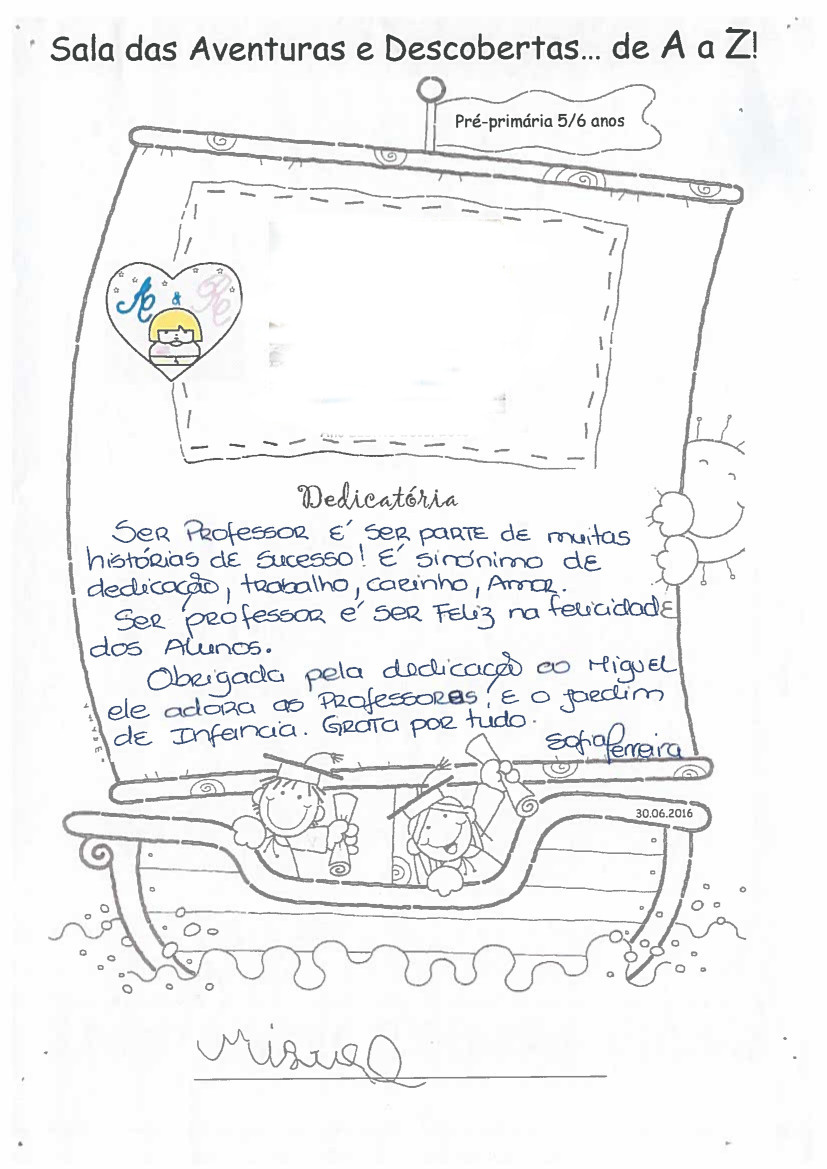 Sala das Aventuras e Descobertas... de A a Z!
Pré-primária 5/6 anos
&
Dedicatória
Ser Professor é ser parte de muitas
histórias de sucesso! É sinónimo de
dedicação, trabalho, carinho, Amor.
Ser professor é ser Feliz na felicidade
dos Alunos.
Obrigada pela dedicação ao Miguel
ele adora as Professoras, e o jardim
de Infancia. Grata por tudo.
Sofia Ferreira
30.06.2016
Miguel